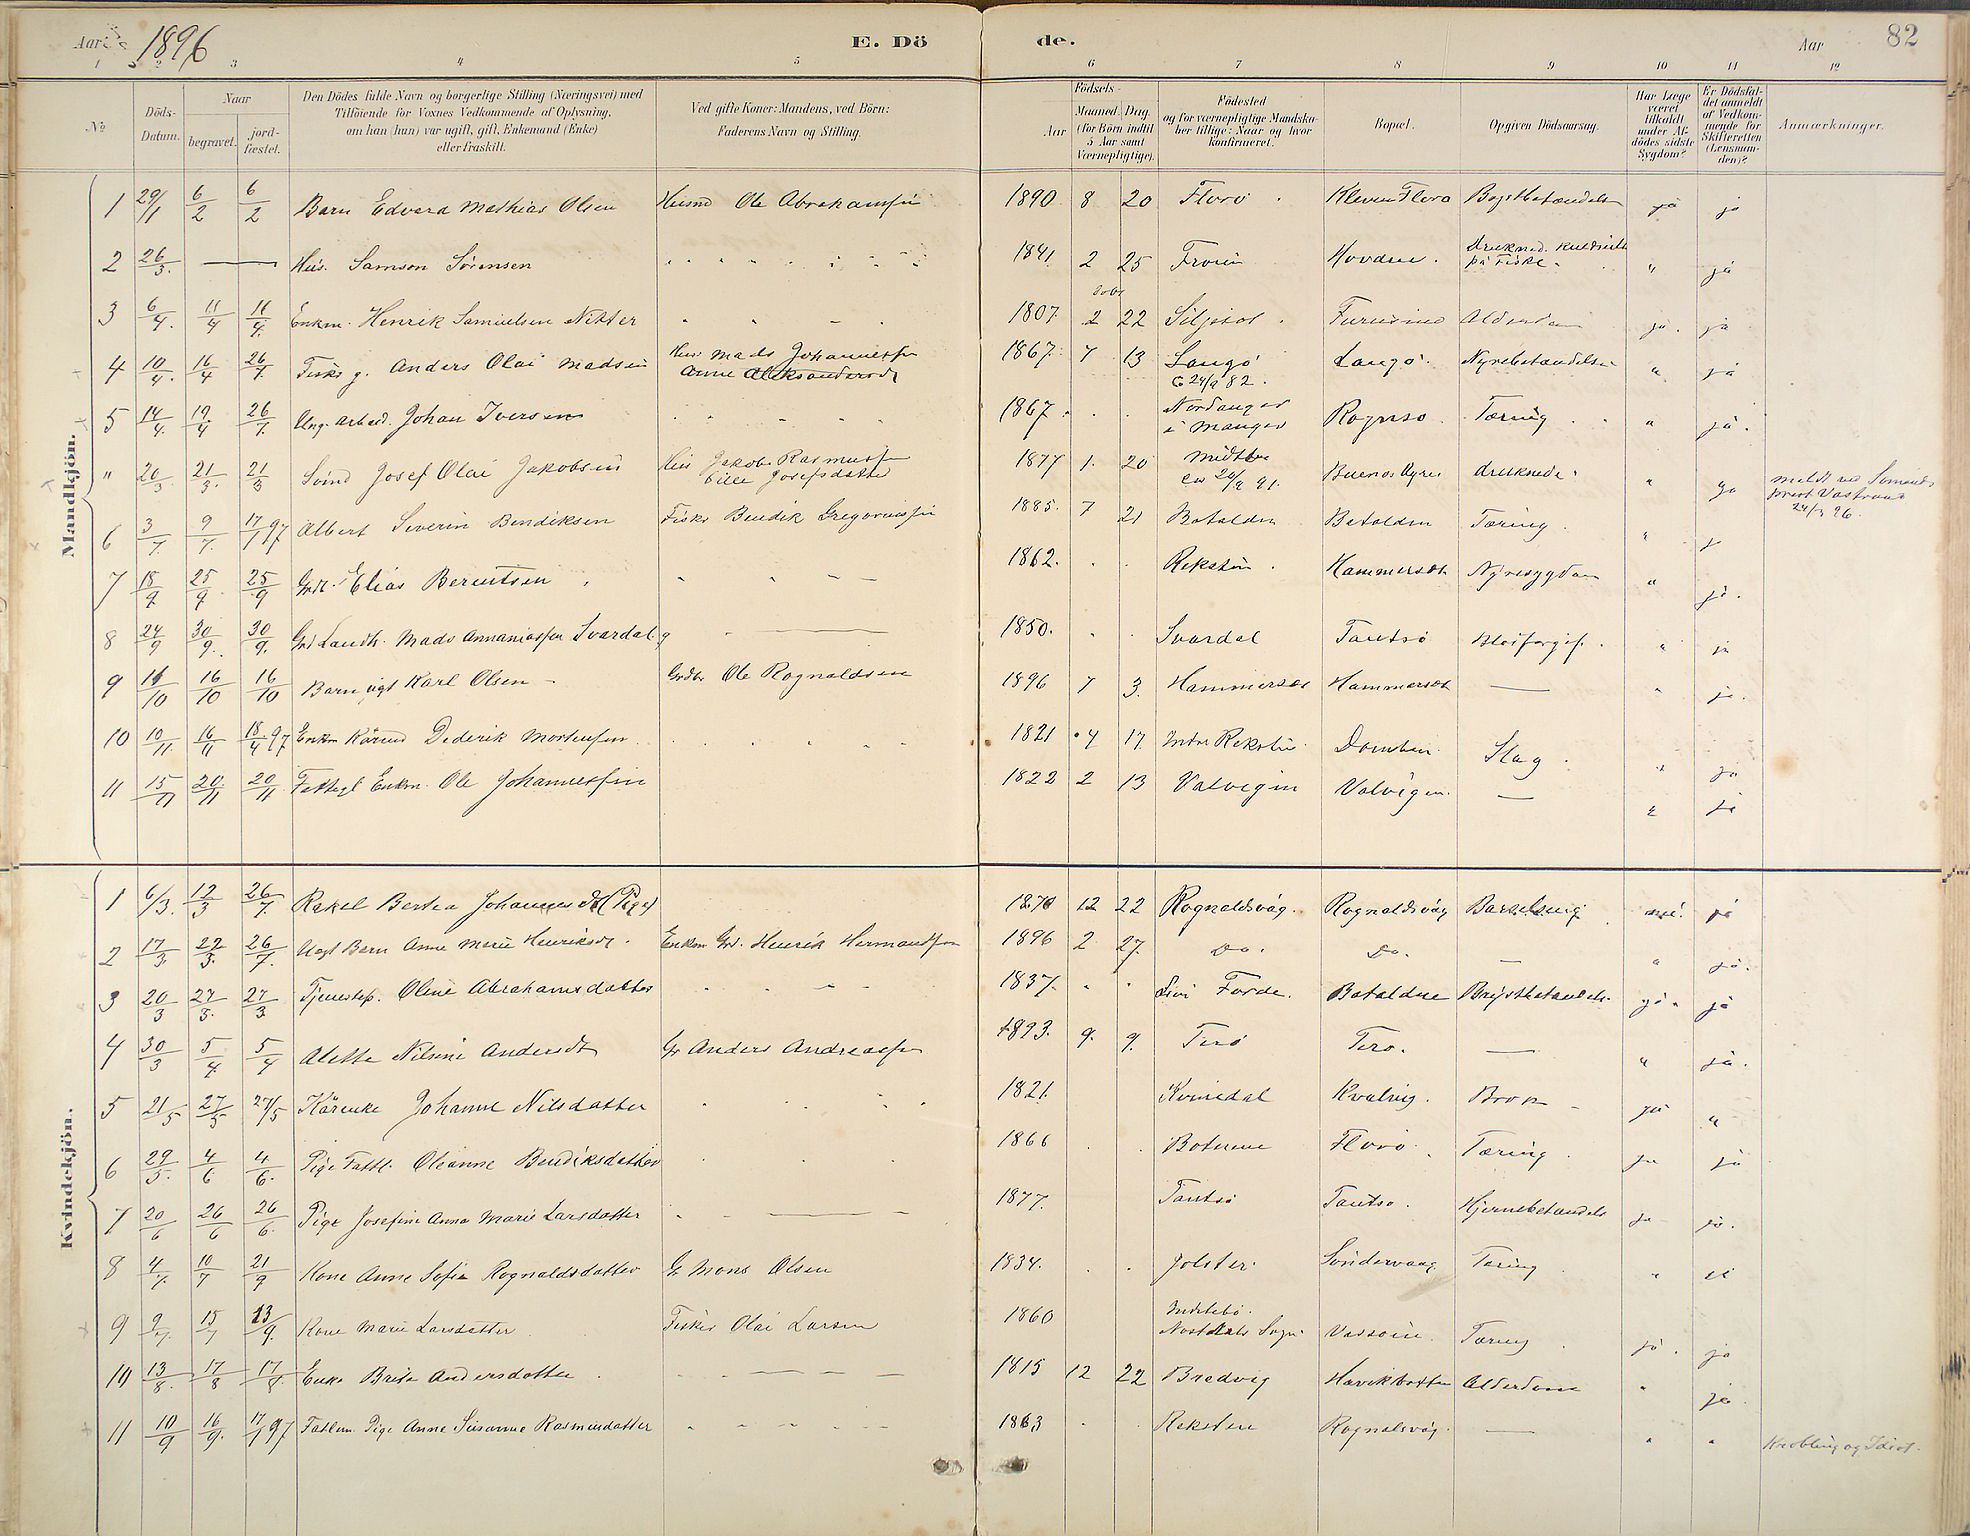 Aar 1896
E. Döde.
Aar
82
1 2 3 4 5 6 7 8 9 10 11 12
№
Döds-Datum.
Naar
begravet.
jord-fæstet.
Den Dödes fulde Navn og borgerlige Stilling (Næringsvei) med
Tilföiende for Voxnes Vedkommende af Oplysning,
om han (hun) var ugift, gift, Enkemand (Enke)
eller fraskilt.
Ved gifte Koner: Mandens, ved Börn:
Faderens Navn og Stilling.
Födsels-
Aar
Maaned. Dag.
(for Börn indtil
5 Aar samt
Værnepligtige).
Födested
og for værnepligtige Mandska-
ber tillige: Naar og hvor
konfirmeret.
Bopæl.
Opgiven Dödsaarsag.
Har Læge
været
tilkaldt
under Af-
dödes sidste
Sygdom?
Er Dödsfal-
det anmeldt
af Vedkom-
mende for
Skifteretten
(Lensman-
den)?
Anmærkninger.
Mandkjön.
1 29/1 6/2 6/2 Barn Edvard Mathias Olsen Husmd Ole Abrahamsen 1890 8 20 Florø Kleven Florø Brystbetændelse ja ja
2 26/3. — Hus. Samson Sørensen 1841. 2 25 Hovden. drukned. på Fiske. " ja
3 6/4. 11/4 11/4. Enkm. Henrik Samuelsen Nitter 1807. 2 22 ja. ja
4 10/4. 16/4 26/7. Fisker g. Anders Olai Madsen Hus Mads Johannessen Anne Aleksandersdr 1867. 7 13 Langø 82. Langø. Nyrebetændelse " ja
5 14/4. 19/4 26/7. Ung. arbeid. Johan Iversen 1867. Nordanger i Manger Rognsø. Tæring " ja.
" 20/3. 21/3. 21/3 Josef Olai Jakobsen Hus Jakob Rasmussen Josefsdatter 1877 1. 20 91. Buenos Ayres druknede. " ja meldt ved
6 3/7. 9/7. 17/7 97 Albert Severin Bendiksen Fisker Bendik Gregoriussen 1885. 7 21 Batalden Batalden Tæring. " ja
7 18/9 25/9 25/9 Grdr. Elias Berentsen 1862. Reksten. Hammersøt Nyresygdom " ja.
8 24/9 30/9. 30/9. Mads Annaniassen Svardal g 1850. Svardal Tantsø Blodforgif. " ja
9 14/10 16/10 16/10 Barn ugt Karl Olsen Grdbr Ole Rognaldsen 1896 7 3. Hammersøt Hammersøt — " ja.
10 10/11. 16/11 18/4 97 Enkm Dederik Mortensen 1821 4 17 Indre Reksten. Domben. Slag. " ja
11 15/11 20/11 20/11 Fattigl Enkm. Ole Johannessen 1822 2 13 Valvigen Valvigen. — " ja
Kvindekjön.
1 6/3. 12/3 26/7. Rakel Bertea Johannesdtr (Pige) 1870 12 22 Rognaldsvåg. Rognaldsvåg Barselseng. nei. ja
2 17/3. 22/3. 26/7. Ungt Barn Anne Marie Henriksdr. Enkm Grd. Henrik Hermandsen 1896 2 27. Do. Do. — " ja.
3 20/3 27/3. 27/3. Tjenestep. Oline Abrahamsdatter 1837. Førde. Bataldne Brystbetændels. ja. ja
4 30/3 5/4. 5/4 Alette Nilsine Andersdt Gr Anders Andreassen 1893. 9. 9. Terø Terø. — " ja.
5 21/5 27/5 27/5 Kårenke Johanne Nilsdatter 1821. Kvinedal Kvalvig. Brok ja "
6 29/5. 4/6 4/6. Pige Fattl. Oleanne Bendiksdatter 1866 Botnene Florø. Tæring. ja ja
7 20/6 26/6 26/6. Pige Josefine Anna Marie Larsdatter 1877. Tantsø Tantsø. Hjernebetændels ja ja.
8 4/7. 10/7 21/9 Kone Anne Sofie Rognaldsdatter Gr Mons Olsen 1834. Jølster. Søndervaag. Tæring. "
9 9/7. 15/7 13/9. Kone Marie Larsdatter Fisker Olai Larsen 1860 Indrebø. Nostdals Sogn. Tæring. ja. ja
10 13/8. 17/8 17/8. Enke Brita Andersdatter. 1815 12 22 Bredvig Alderdom " ja.
11 10/9 16/9. 17/7 97 Fatlem. Pige Anne Susanne Rasmusdatter 1863 Reksten Rognalsvåg. — " " Krøbling og Idiot.